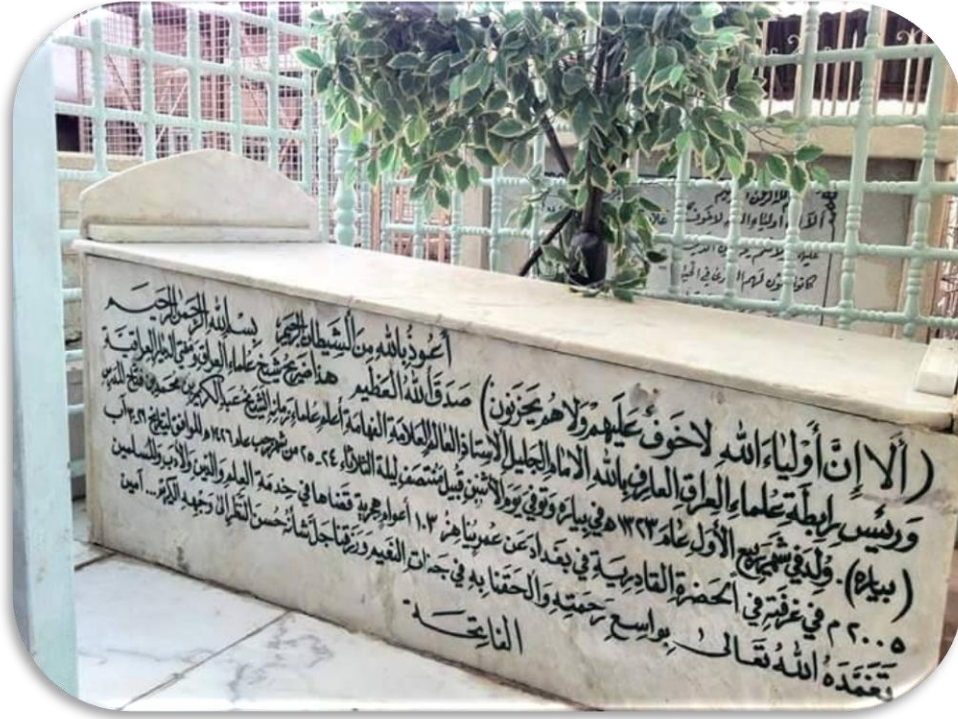 أعوذ بالله من الشيطان الرجيم بسم الله الرحمن الرحيم
(ألا إن أولياء الله لا خوف عليهم ولا هم يحزنون) صدق الله العظيم هذا ضريح شيخ علماء العراق ومفتي الديار العراقية
ورئيس رابطة علماء العراق العارف بالله الامام الجليل الأستاذ العالم العلامة الفهامة أعلم علماء زمانه الشيخ عبد الكريم بن محمد بن فتاح المدرس
(بياره). ولد في شهر ربيع الأول عام ١٣٢٣ هـ في بياره وتوفي يوم الاثنين قبيل منتصف ليلة الثلاثاء ٢٤-٢٥ من شهر رجب عام ١٤٢٦ هـ الموافق لتاريخ ٢٩-٣٠ آب
٢٠٠٥ م في غرفته في الحضرة القادرية في بغداد عن عمر يناهز ١٠٣ أعوام هجرية قضاها في خدمة العلم والدين والأدب والمسلمين
تغمده الله تعالى بواسع رحمته وألحقنا به في جنات النعيم ورزقنا جل شأنه حسن النظر الى وجهه الكريم... آمين
الفاتحة